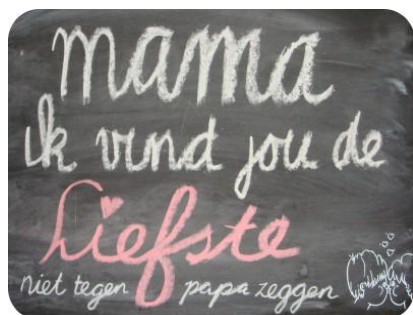 mama
ik vind jou de
Liefste
niet tegen papa zeggen